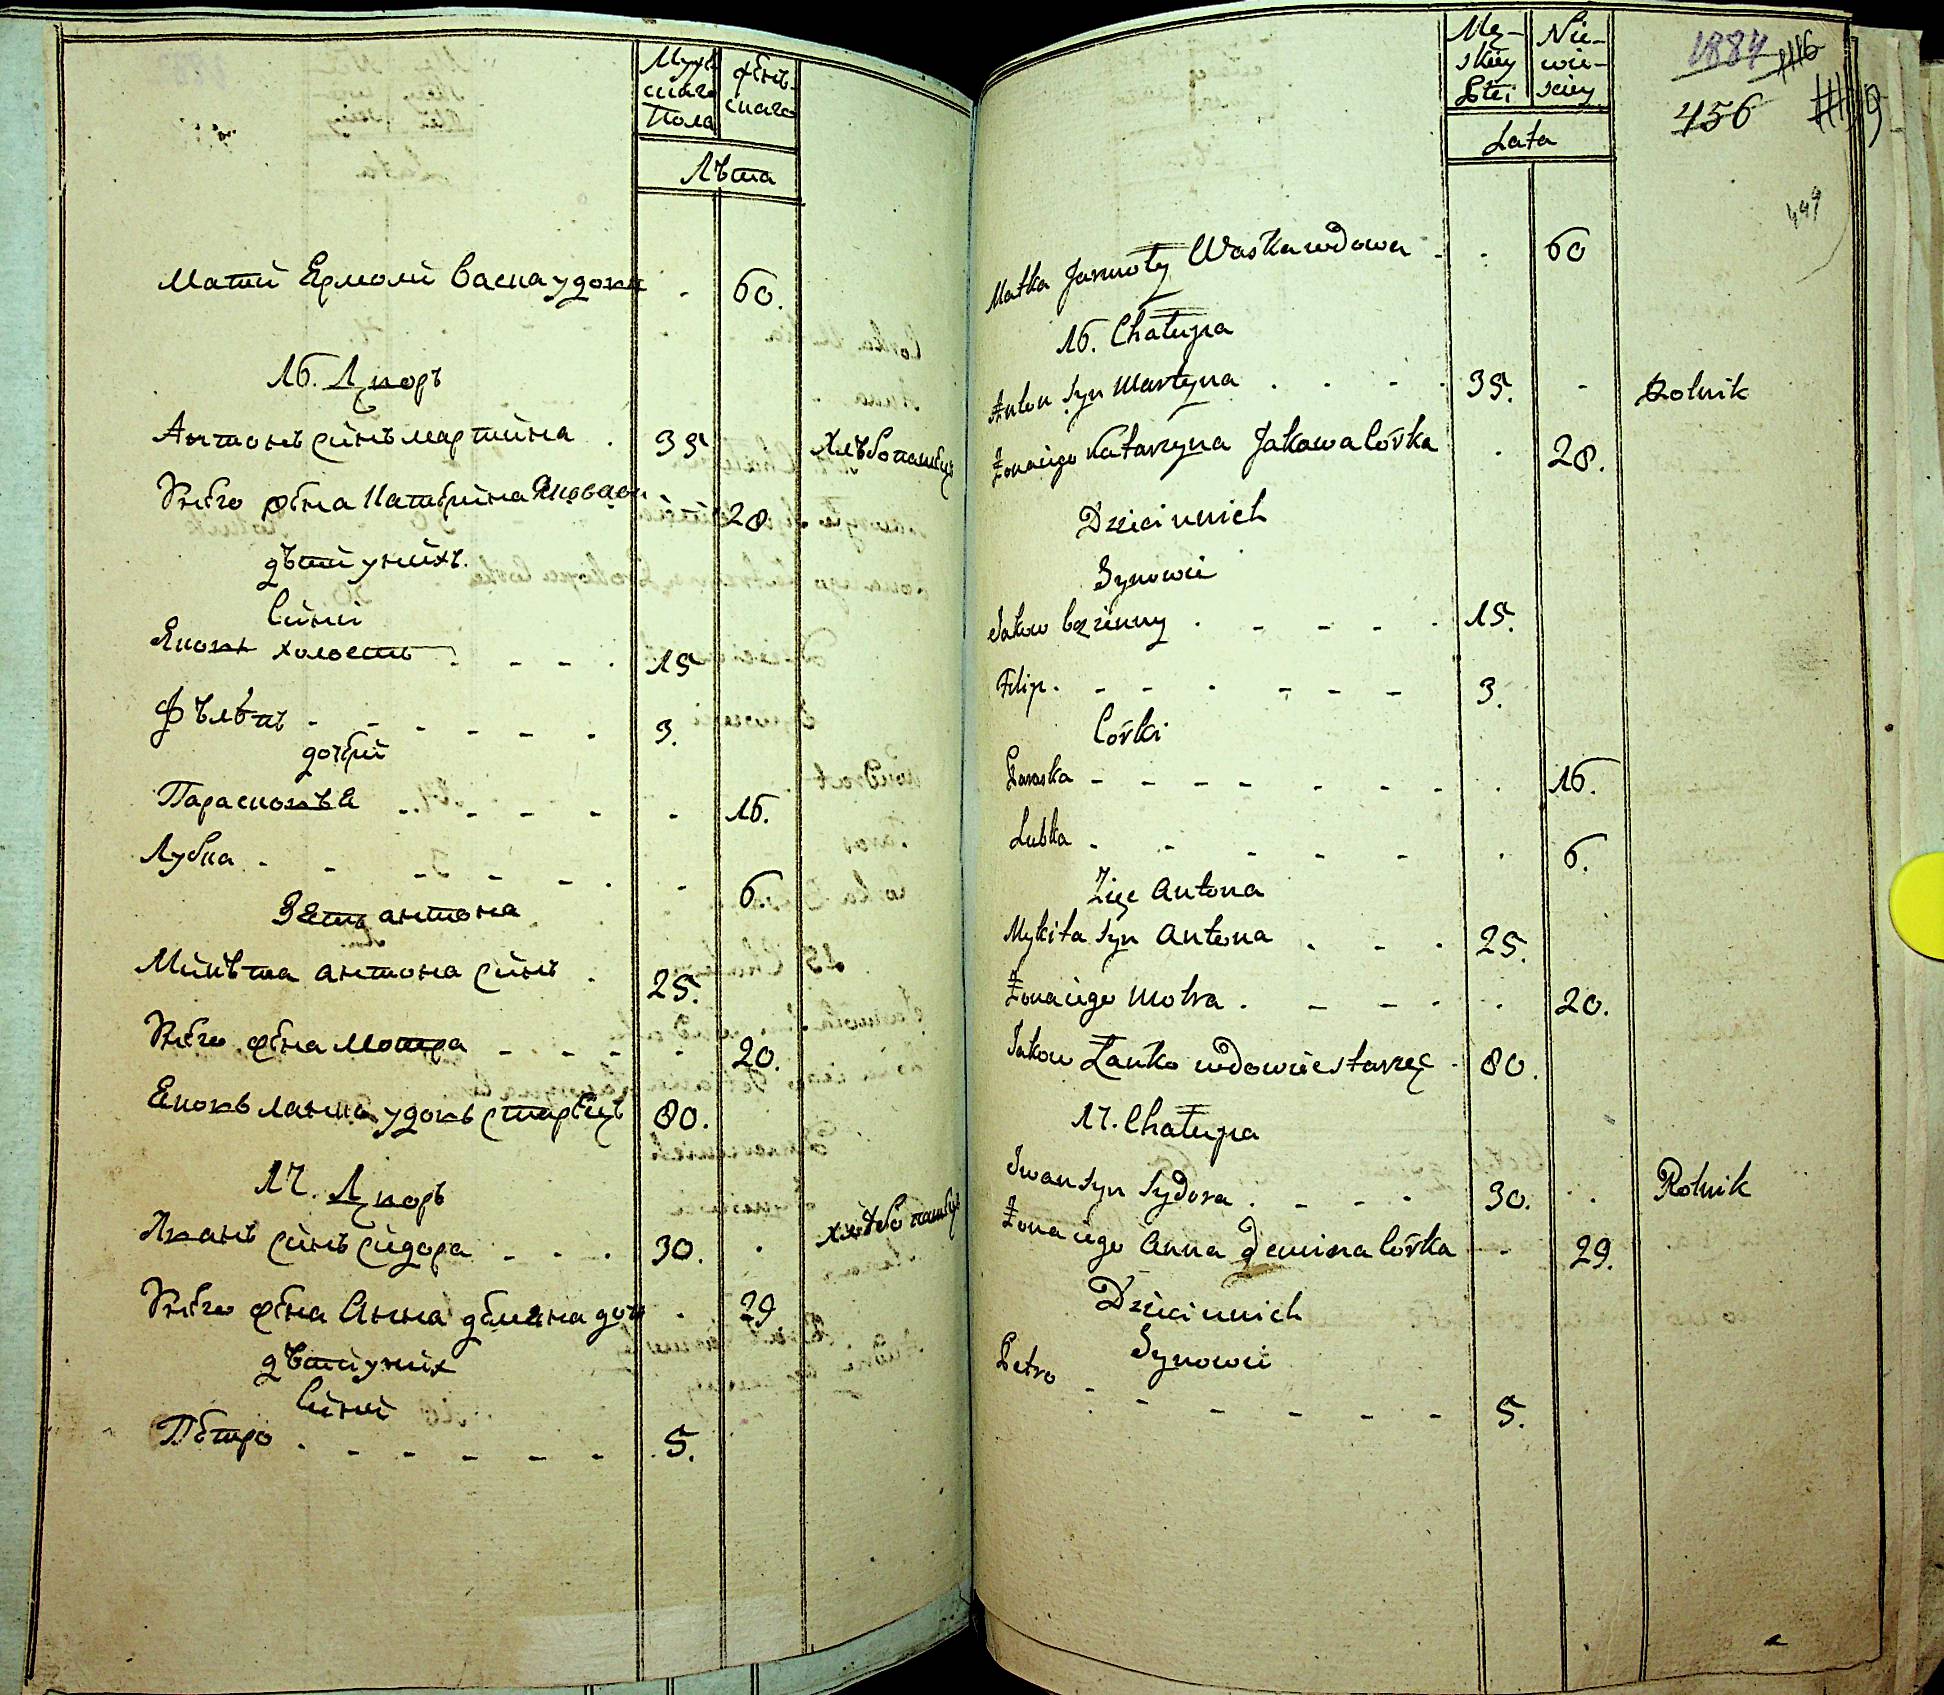 Мужскаго Пола
женскаго
Лѣта
Матий Ермоли Васка удова . 60.
16. Двορъ
Антонъ синъ мартина . 35 хлѣбопашец
Унего жена Катерина Яковова 28.
дѣти унихъ.
Сини
Яковъ холостъ 15
Филѣпъ 3.
дочери
Парасковѣя 16.
Лубка 6.
Зять антона
Микѣта антона синъ 25.
Унего жена Мотра 20.
Яковъ ланка удовъ старецъ 80.
17. Дворъ
Иванъ синъ Сидора 30. хлѣбопашец
Унего жена Анна демяна доч 29
дѣти уних
Сини
Петро 5.
Męskiey Płci
Niewieściey
Lata
1884
456
449
Matka Jarmoły Waska wdowa 60
16. Chałupa
Anton Syn Martyna 35. Rolnik
Żona iego Katarzyna Jakowa Córka 28.
Dzieci u nich
Synowie
Jakow bezżenny 15.
Filip. 3.
Córki
Paraska 16.
Lubka 6.
Zięc Antona
Mykita Syn Antona 25.
Żona iego Motra 20.
Jakow Łanko wdowiec starzec 80.
17. Chałupa
Iwan Syn Sydora 30. Rolnik
Żona iego Anna Demiana Córka 29.
Dzieci u nich
Synowie
Petro 5.